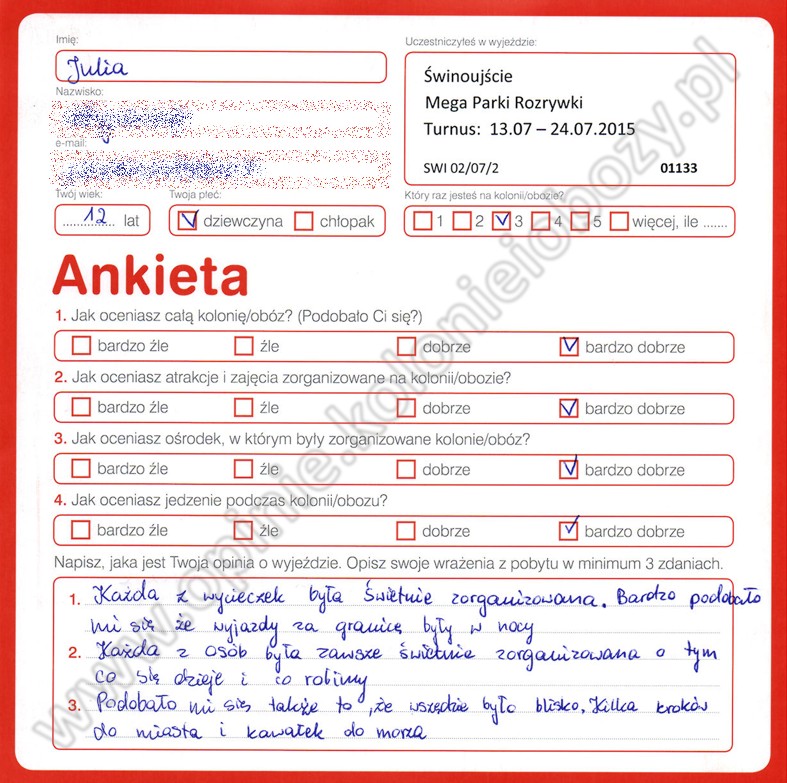 Imię:
Julia
Nazwisko:
e-mail:
Twój wiek:
12 lat
Twoja płeć:
dziewczyna chłopak
Uczestniczyłeś w wyjeździe:
Świnoujście
Mega Parki Rozrywki
Turnus: 13.07 – 24.07.2015
SWI 02/07/2 01133
Który raz jesteś na kolonii/obozie?
1 2 3 4 5 więcej, ile .......
Ankieta
1. Jak oceniasz całą kolonię/obóz? (Podobało Ci się?)
bardzo źle źle dobrze bardzo dobrze
2. Jak oceniasz atrakcje i zajęcia zorganizowane na kolonii/obozie?
bardzo źle źle dobrze bardzo dobrze
3. Jak oceniasz ośrodek, w którym były zorganizowane kolonie/obóz?
bardzo źle źle dobrze bardzo dobrze
4. Jak oceniasz jedzenie podczas kolonii/obozu?
bardzo źle źle dobrze bardzo dobrze
Napisz, jaka jest Twoja opinia o wyjeździe. Opisz swoje wrażenia z pobytu w minimum 3 zdaniach.
1. Każda z wycieczek była świetnie zorganizowana. Bardzo podobało
mi się że wyjazdy za granicę były w nocy
2. Każda z osób była zawsze świetnie zorganizowana o tym
co się dzieje i co robimy
3. Podobało mi się także to, że wszędzie było blisko. Kilka kroków
do miasta i kawałek do morza
www.opinie.kolonieiobozy.pl